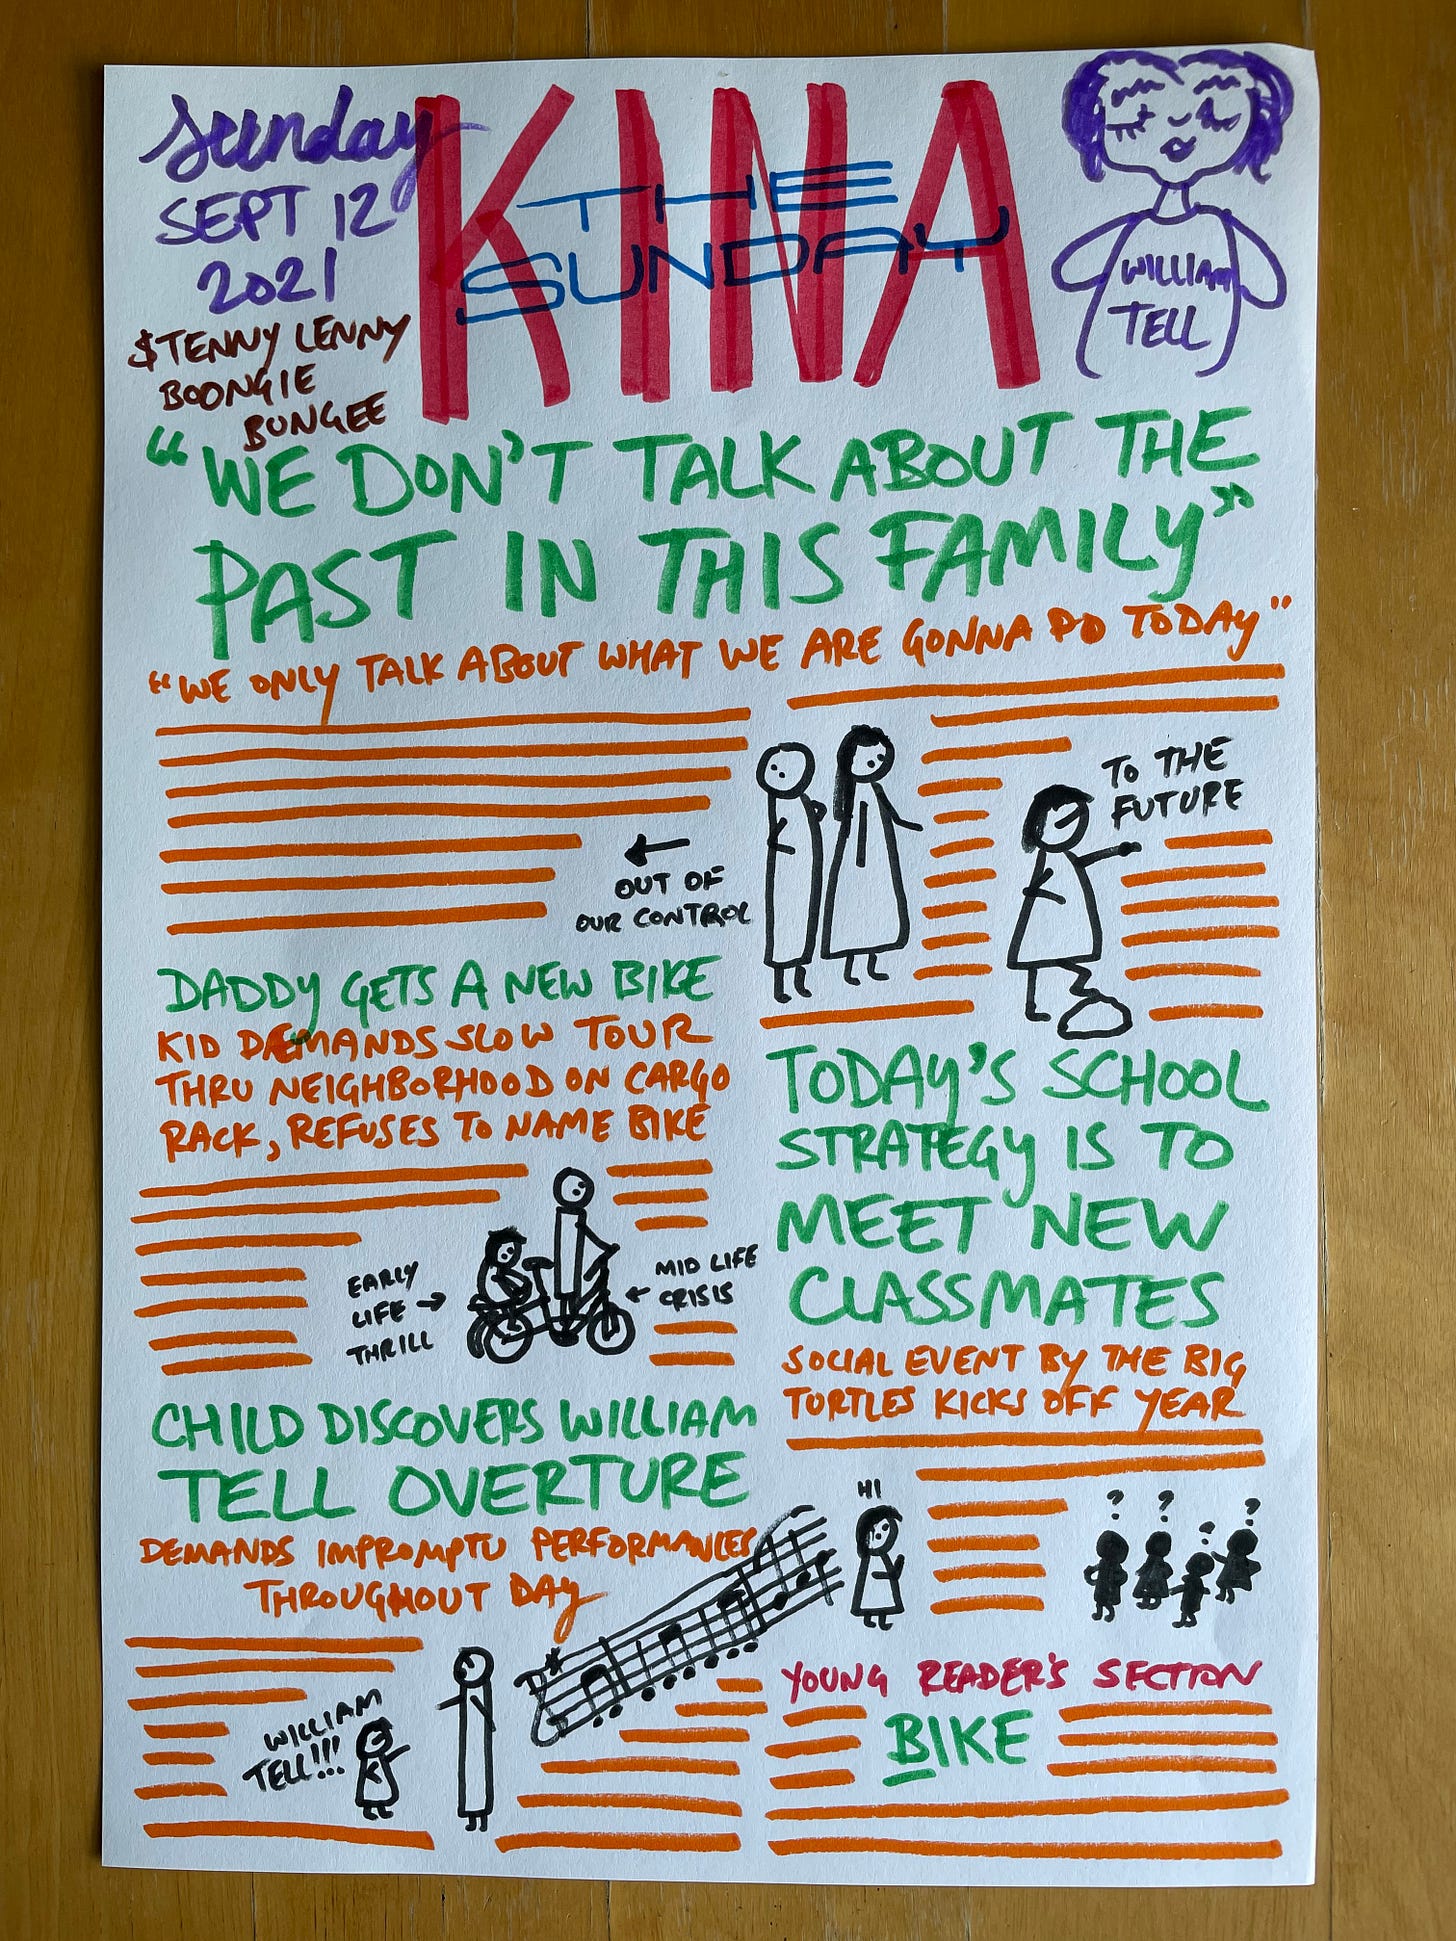 Sunday
SEPT 12
2021
$TENNY LENNY
BOONGIE
BUNGEE
KINA
THE
SUNDAY
WILLIAM
TELL
"WE DON'T TALK ABOUT THE
PAST IN THIS FAMILY"
"WE ONLY TALK ABOUT WHAT WE ARE GONNA DO TODAY"
←
OUT OF
OUR CONTROL
TO THE
FUTURE
DADDY GETS A NEW BIKE
KID DEMANDS SLOW TOUR
THRU NEIGHBORHOOD ON CARGO
RACK, REFUSES TO NAME BIKE
EARLY
LIFE →
THRILL
MID LIFE
← CRISIS
CHILD DISCOVERS WILLIAM
TELL OVERTURE
DEMANDS IMPROMPTU PERFORMANCES
THROUGHOUT DAY
WILLIAM
TELL!!!
TODAY'S SCHOOL
STRATEGY IS TO
MEET NEW
CLASSMATES
SOCIAL EVENT BY THE BIG
TURTLES KICKS OFF YEAR
HI
? ? ? ?
YOUNG READER'S SECTION
BIKE